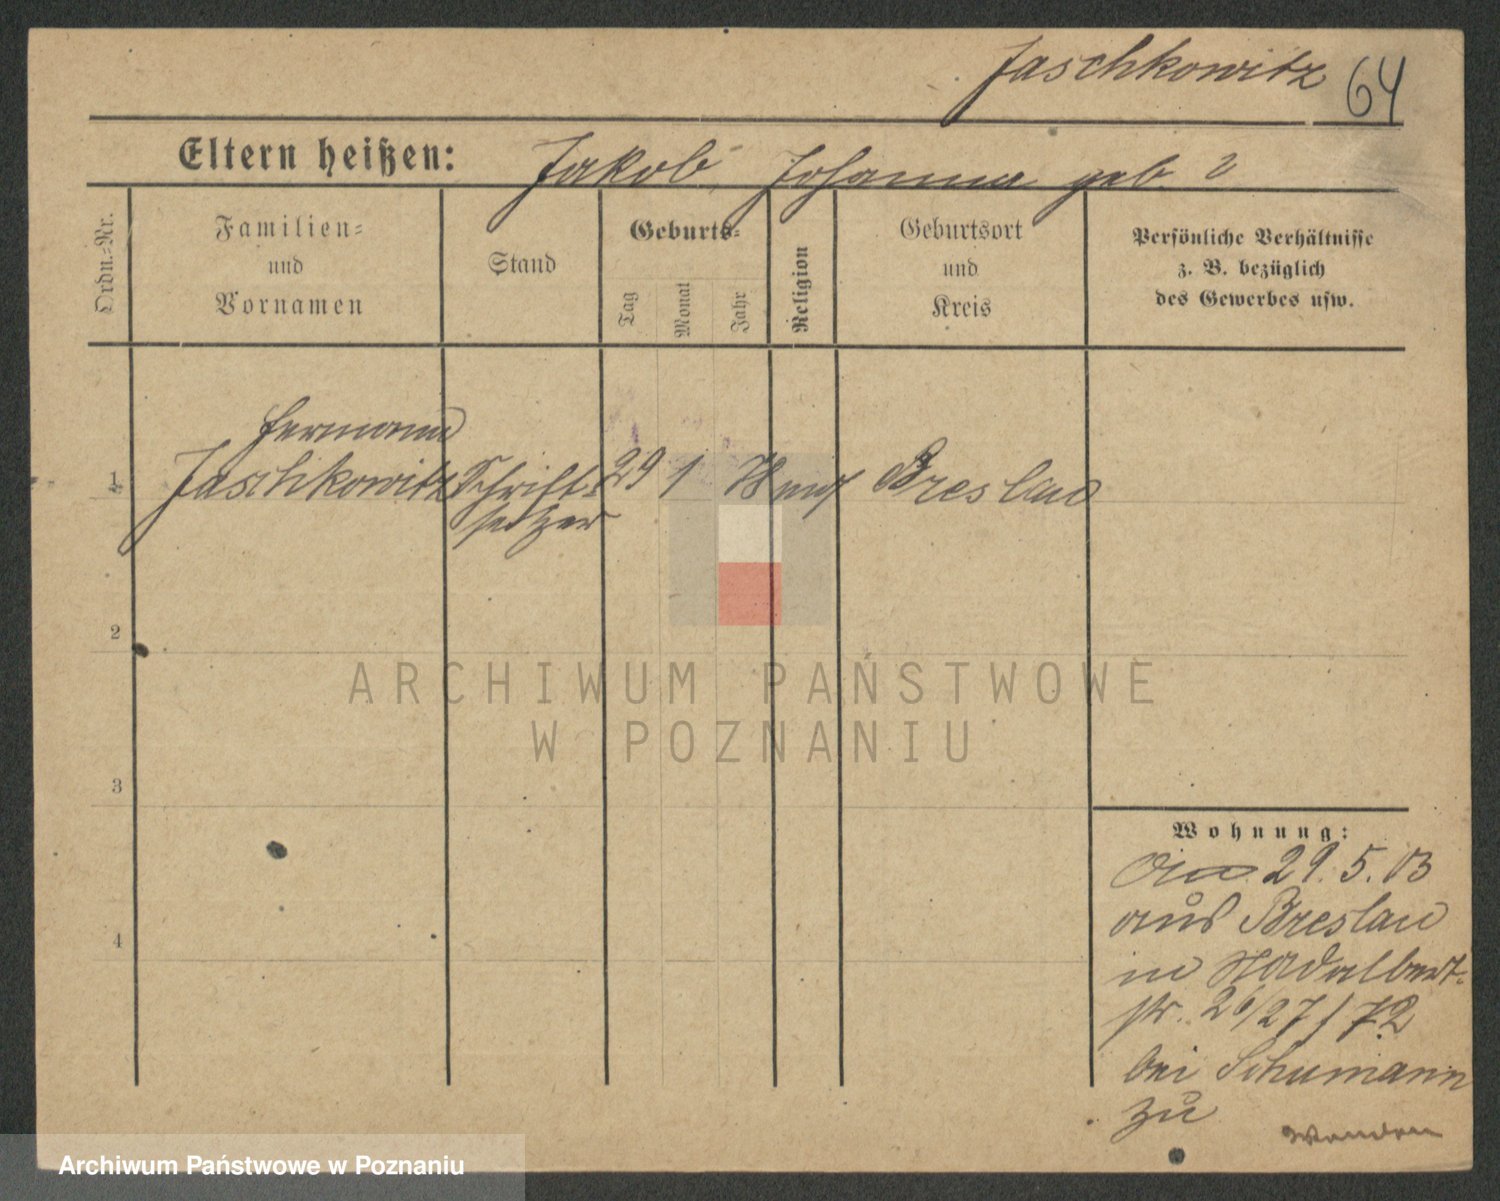 Jaschkowitz 64
Eltern heißen: Jakob Johanna geb. ?
Ordn.-Nr.
Familien-
und
Vornamen
Stand
Geburts-
Tag
Monat
Jahr
Religion
Geburtsort
und
Kreis
Persönliche Verhältnisse
z. B. bezüglich
des Gewerbes usw.
Hermann
1 Jaschkowitz Schrift- 29 1 Breslau
setzer
2
3
4
Wohnung:
29.5.03
aus Breslau
in Adalbert-
str. 26/27 / 72
bei Schumann
zu
ARCHIWUM PAŃSTWOWE
W POZNANIU
Archiwum Państwowe w Poznaniu